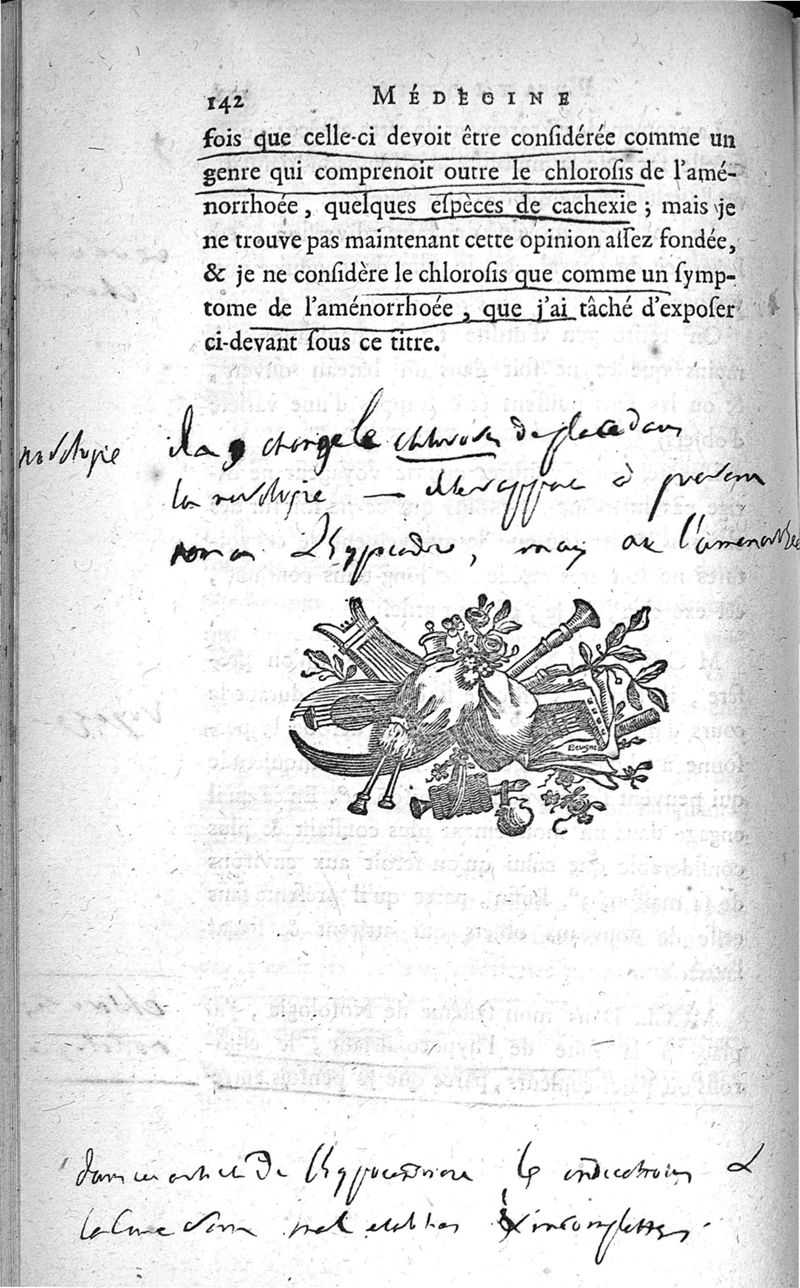 142 MÉDECINE
fois que celle-ci devoit être considérée comme un
genre qui comprenoit outre le chlorosis de l'amé-
norrhoée, quelques espèces de cachexie ; mais je
ne trouve pas maintenant cette opinion assez fondée,
& je ne considère le chlorosis que comme un symp-
tome de l'aménorrhoée, que j'ai tâché d'exposer
ci-devant sous ce titre.
nosologie
il a changé le chlorosis de place dans
la nosologie — a present
non a l'hypocondrie, mais a l'amenorrhée
Beugnet
dans cet article de l'hypocondrie les indications &
la cure sont mal etablies & incomplettes.